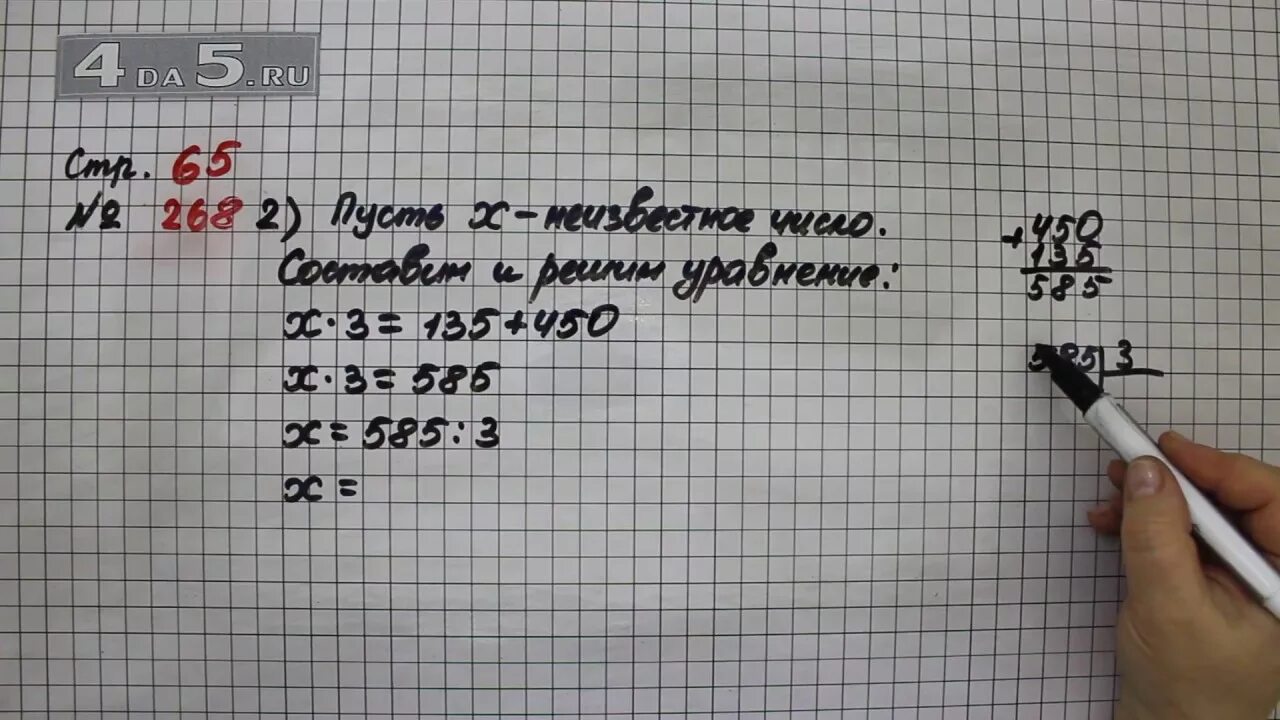 4DA5.RU
Стр. 65
№ 268 2) Пусть x - неизвестное число.
Составим и решим уравнение:
x · 3 = 135 + 450
x · 3 = 585
x = 585 : 3
x =
+ 450
135
585
585 3